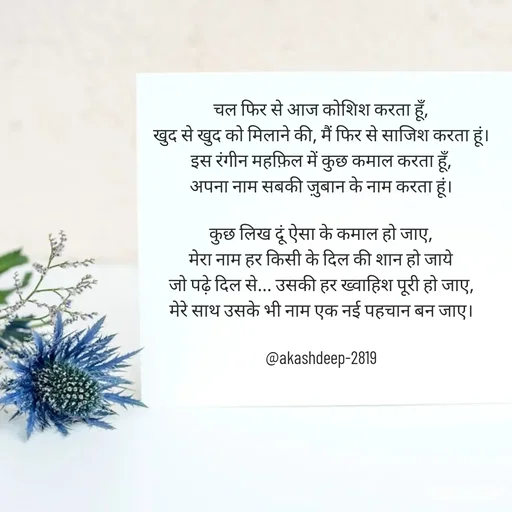 चल फिर से आज कोशिश करता हूँ,
खुद से खुद को मिलाने की, मैं फिर से साजिश करता हूं।
इस रंगीन महफ़िल में कुछ कमाल करता हूँ,
अपना नाम सबकी ज़ुबान के नाम करता हूं।
कुछ लिख दूं ऐसा के कमाल हो जाए,
मेरा नाम हर किसी के दिल की शान हो जाये
जो पढ़े दिल से... उसकी हर ख्वाहिश पूरी हो जाए,
मेरे साथ उसके भी नाम एक नई पहचान बन जाए।
@akashdeep-2819